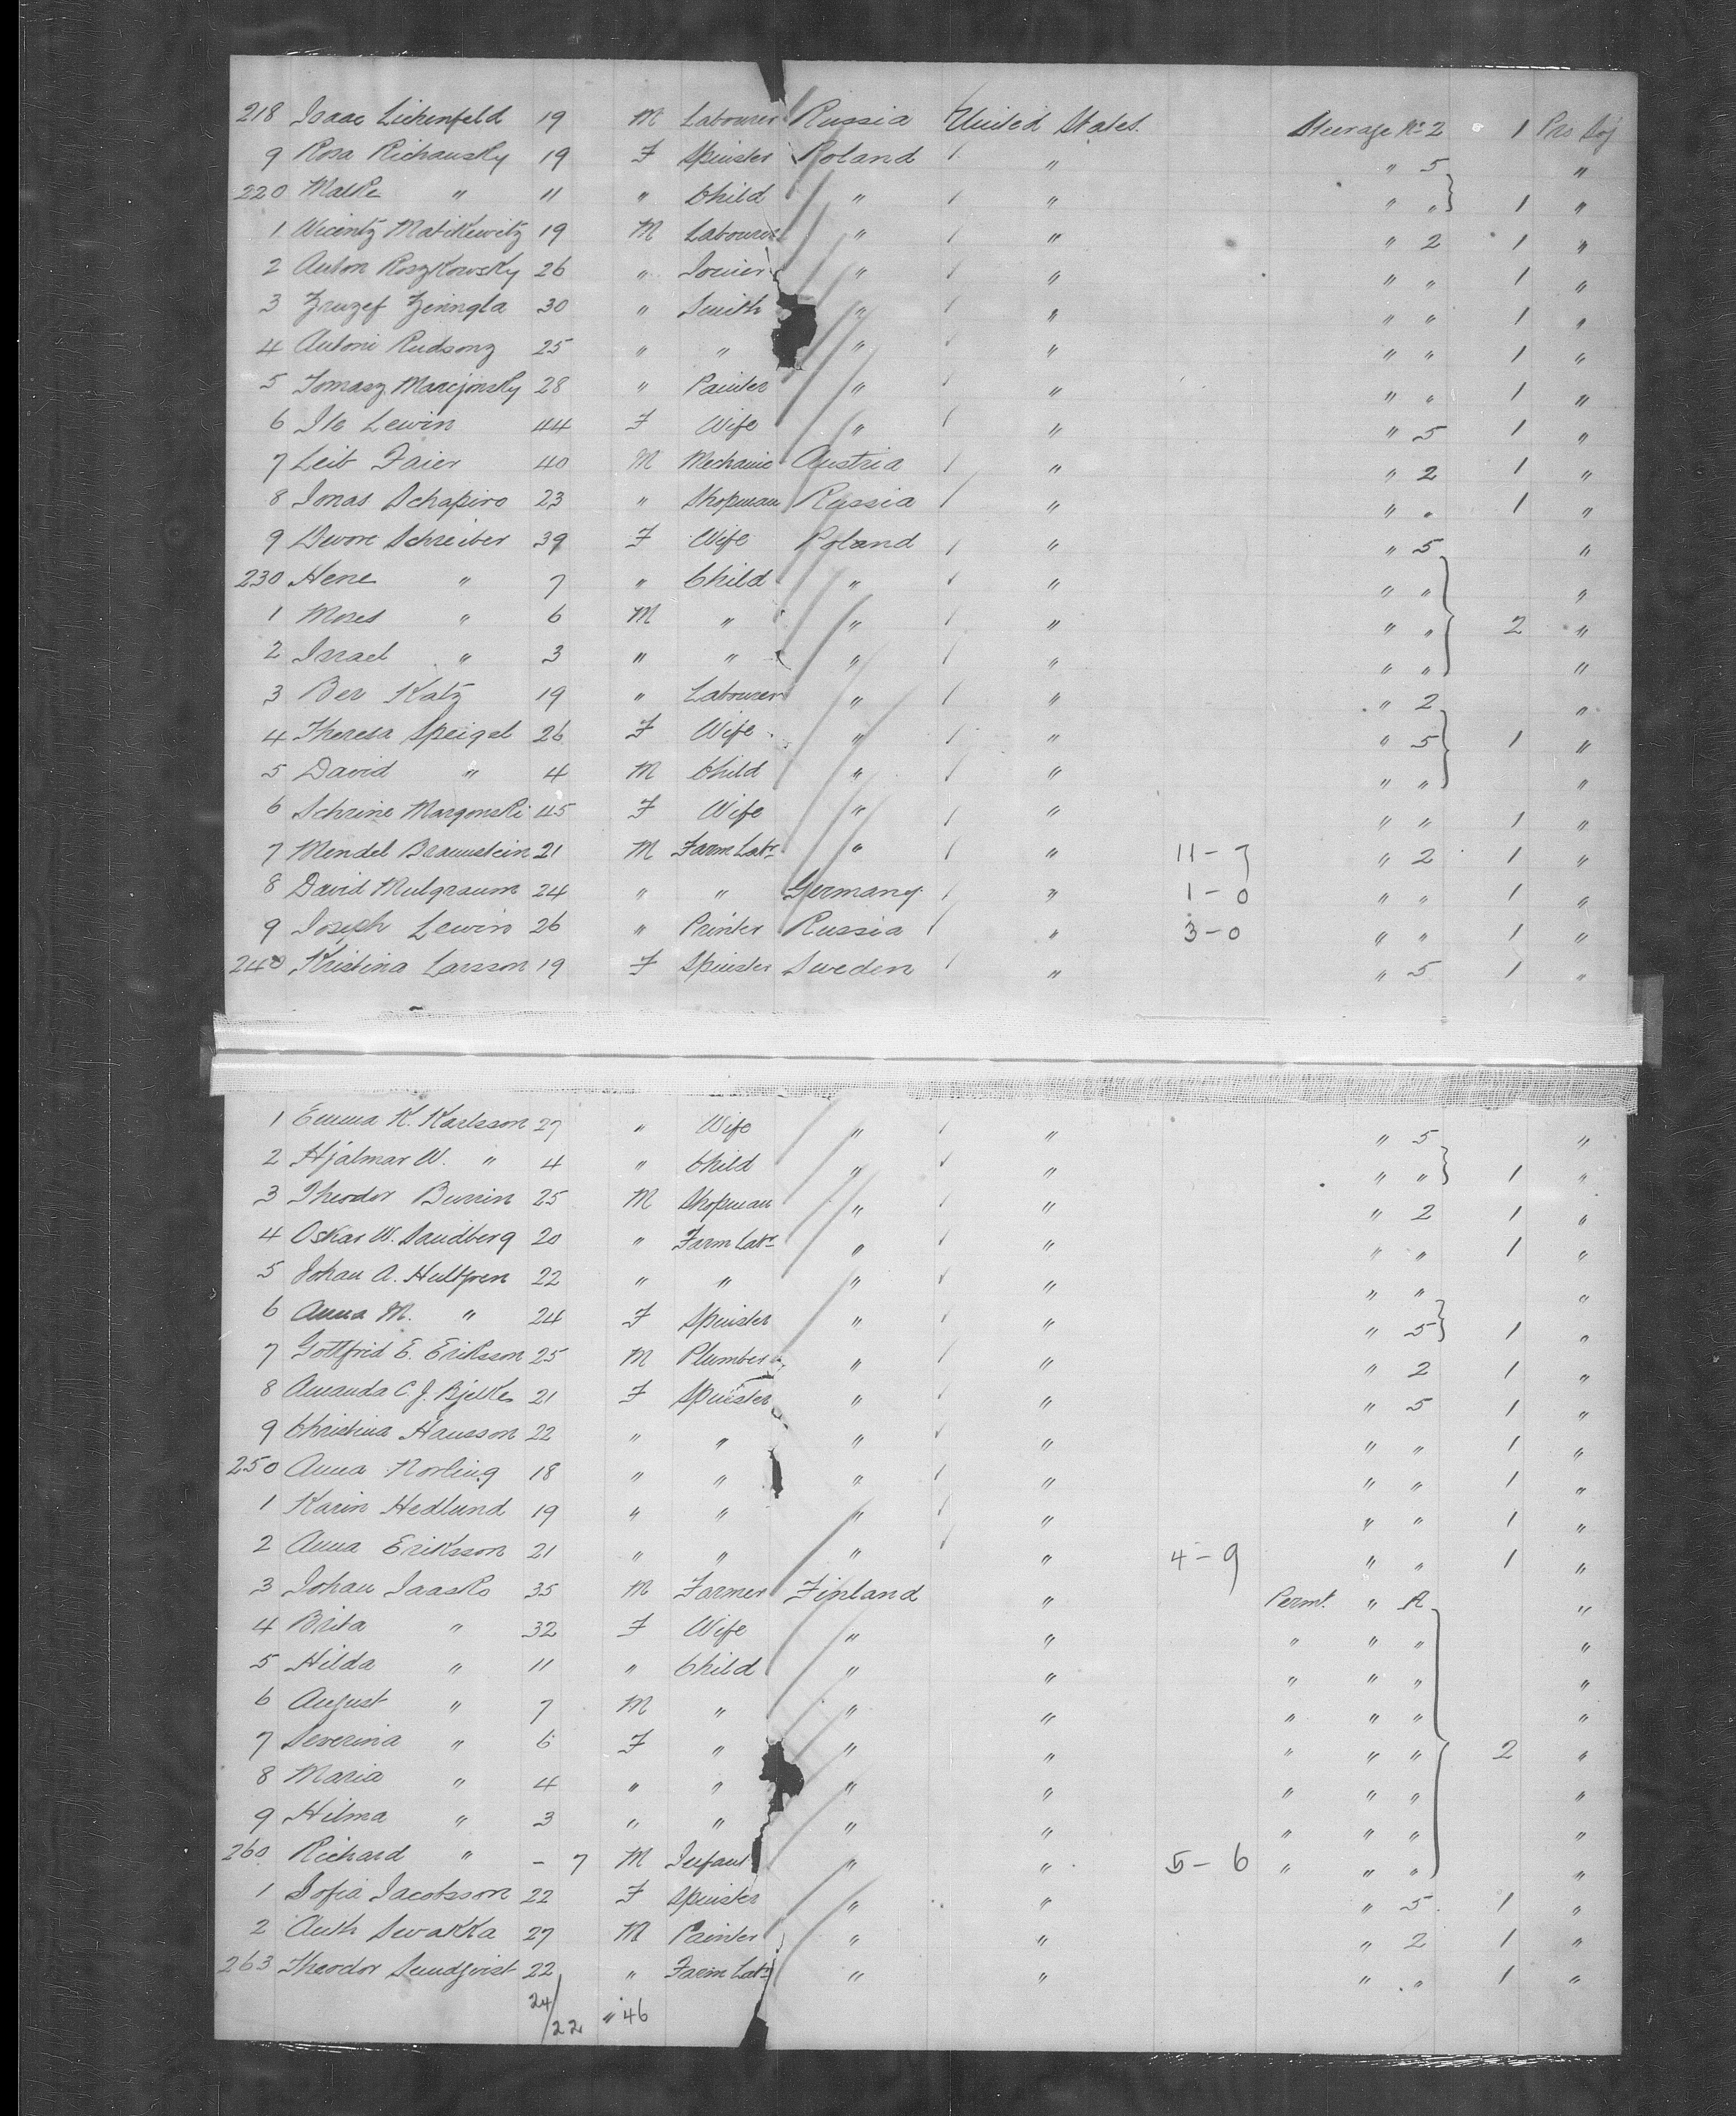 218 Isaac Lichenfeld 19 M Labourer Russia United States. Steerage No 2 1 Pro Soj
9 Rosa Richausky 19 F Spinster Poland " " 5 "
220 Malke " 11 " Child " " " " 1 "
1 Wicentz Matikewitz 19 M Labourer " " " 2 1 "
2 Anton Roszkowsky 26 " Joiner " " " " 1 "
3 Zruzef Zeningla 30 " Smith " " " " 1 "
4 Antoni Rudsonz 25 " " " " " " 1 "
5 Tomasz Marcjonsky 28 " Painter " " " " 1 "
6 Ite Lewin 44 F Wife " " " 5 1 "
7 Leib Faier 40 M Mechanic Austria " " 2 1 "
8 Jonas Schapiro 23 " Shopman Russia " " " 1 "
9 Dwore Schreiber 39 F Wife Poland " " 5 "
230 Hene " 7 " Child " " " " "
1 Moses " 6 M " " " " " 2 "
2 Israel " 3 " " " " " " "
3 Ber Katz 19 " Labourer " " " 2 "
4 Theresa Speigel 26 F Wife " " " 5 1 "
5 David " 4 M Child " " " " "
6 Schrine Margonski 45 F Wife " " " " 1 "
7 Mendel Braunstein 21 M Farm Labr " " 11-7 " 2 1 "
8 David Mulgraum 24 " " Germany " 1-0 " " 1 "
9 Joseph Lewin 26 " Printer Russia " 3-0 " " 1 "
240 Kristina Larsson 19 F Spinster Sweden " " 5 1 "
1 Emma K. Karlsson 27 " Wife " " " 5 "
2 Hjalmar W. " 4 " Child " " " " 1 "
3 Theodor Bunin 25 M Shopman " " " 2 1 "
4 Oskar W. Sandberg 20 " Farm Labr " " " " 1 "
5 Johan A. Hultgren 22 " " " " " " "
6 Anna M. " 24 F Spinster " " " 5 1 "
7 Gottfrid E. Eriksson 25 M Plumber " " " 2 1 "
8 Amanda C. J. Bjelke 21 F Spinster " " " 5 1 "
9 Christina Hansson 22 " " " " " " 1 "
250 Anna Norling 18 " " " " " " 1 "
1 Karin Hedlund 19 " " " " " " 1 "
2 Anna Eriksson 21 " " " " 4-9 " " 1 "
3 Johan Jaasko 35 M Farmer Finland " Permt. " A "
4 Brita " 32 F Wife " " " " " "
5 Hilda " 11 " Child " " " " " "
6 August " 7 M " " " " " " "
7 Severina " 6 F " " " " " " 2 "
8 Maria " 4 " " " " " " " "
9 Hilma " 3 " " " " " " " "
260 Richard " - 7 M Infant " " 5-6 " " " "
1 Sofia Jacobsson 22 F Spinster " " " 5 1 "
2 Anth Sevakka 27 M Painter " " " 2 1 "
263 Theodor Sundqvist 22 " Farm Labr " " " " 1 "
24/22 " 46